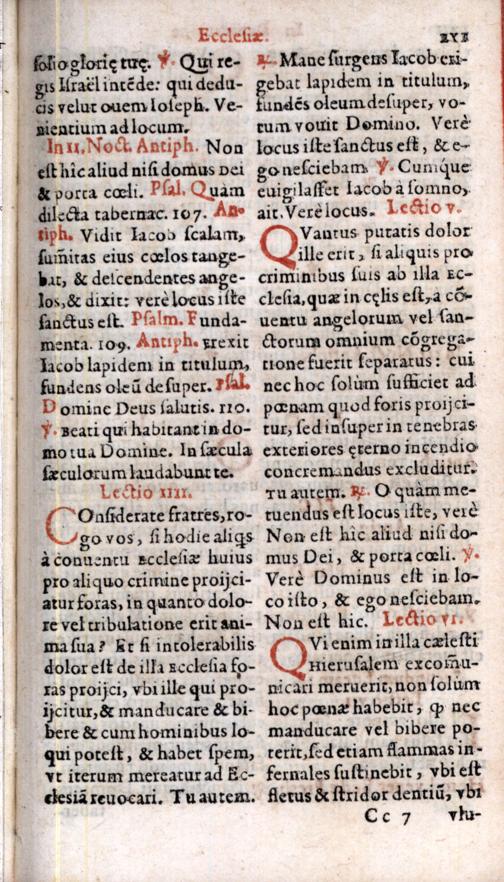 Ecclesiæ.
solio glorię tuę. ℣. Qui re-
gis Israël intēde: qui dedu-
cis velut ouem Ioseph. Ve-
nientium ad locum.
In II. Noct. Antiph. Non
est hîc aliud nisi domus Dei
& porta cœli. Psal. Quàm
dilecta tabernac. 107. An-
tiph. Vidit Iacob scalam,
sumitas eius cœlos tange-
bat, & descendentes ange-
los, & dixit: verè locus iste
sanctus est. Psalm. Funda-
menta. 109. Antiph. Erexit
Iacob lapidem in titulum,
fundens oleū desuper. Psal.
Domine Deus salutis. 110.
℣. Beati qui habitant in do-
mo tua Domine. In sæcula
sæculorum laudabunt te.
Lectio IIII.
COnsiderate fratres, ro-
go vos, si hodie aliqs
à conuentu Ecclesiæ huius
pro aliquo crimine proijci-
atur foras, in quanto dolo-
re vel tribulatione erit ani-
ma sua? Et si intolerabilis
dolor est de illa Ecclesia fo-
ras proijci, vbi ille qui pro-
ijcitur, & manducare & bi-
bere & cum hominibus lo-
qui potest, & habet spem,
vt iterum mereatur ad Ec-
clesiā reuocari. Tu autem.
℟. Mane surgens Iacob eri-
gebat lapidem in titulum,
fundēs oleum desuper, vo-
tum vouit Domino. Verè
locus iste sanctus est, & e-
go nesciebam. ℣. Cumque
euigilasset Iacob à somno,
ait. Verè locus. Lectio V.
QVantus putatis dolor
ille erit, si aliquis pro
criminibus suis ab illa Ec-
clesia, quæ in cęlis est, a cō-
uentu angelorum vel san-
ctorum omnium cōgrega-
tione fuerit separatus: cui
nec hoc solùm sufficiet ad
pœnam quod foris proijci-
tur, sed insuper in tenebras
exteriores ęterno incendio
concremandus excluditur.
Tu autem. ℟. O quàm me-
tuendus est locus iste, verè
Non est hîc aliud nisi do-
mus Dei, & porta cœli. ℣.
Verè Dominus est in lo-
co isto, & ego nesciebam.
Non est hic. Lectio VI.
QVi enim in illa cælesti
Hierusalem excom̄u-
nicari meruerit, non solùm
hoc pœnæ habebit, ꝙ nec
manducare vel bibere po-
terit, sed etiam flammas in-
fernales sustinebit, vbi est
fletus & stridor dentiū, vbi
Cc 7 vlu-